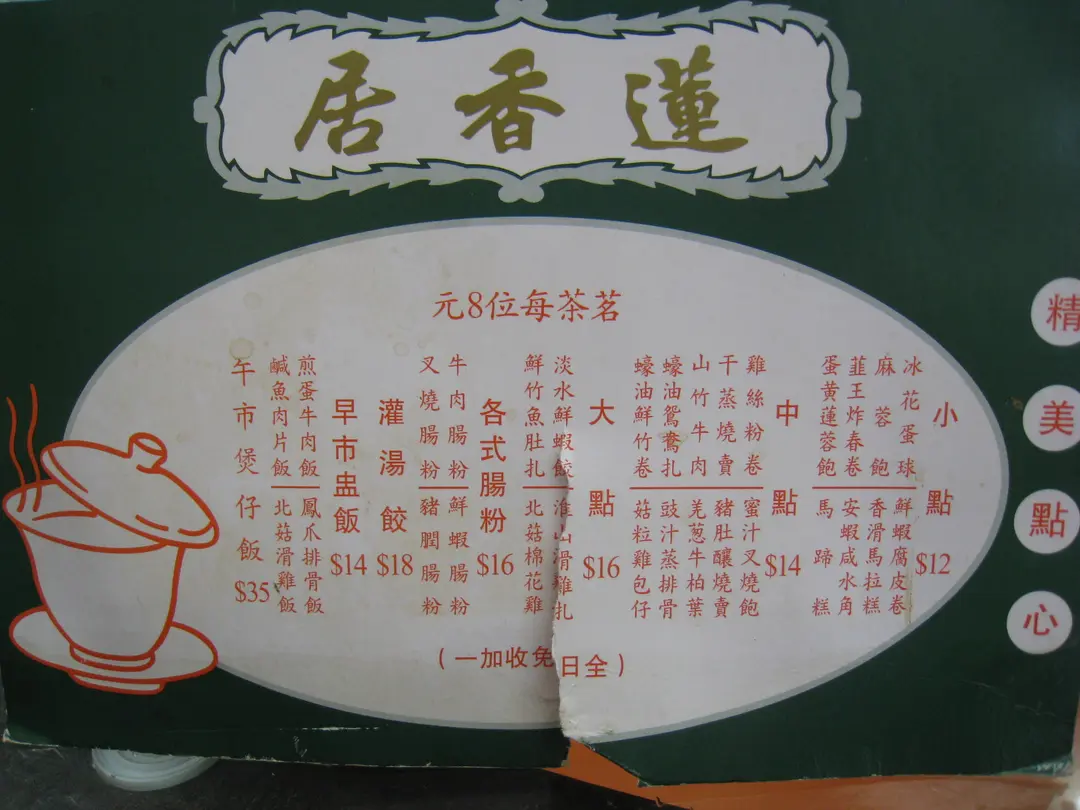 蓮香居
茗茶每位8元
精美點心
小點 $12
冰花蛋球
麻蓉飽
韮王炸春卷
蛋黃蓮蓉飽
鮮蝦腐皮卷
香滑馬拉糕
安蝦咸水角
馬蹄糕
中點 $14
雞絲粉卷
干蒸燒賣
山竹牛肉
蠔油鴛鴦扎
蠔油鮮竹卷
蜜汁叉燒飽
豬肚釀燒賣
羌葱牛柏葉
豉汁蒸排骨
菇粒雞包仔
大點 $16
淡水鮮蝦餃
鮮竹魚肚扎
淮山滑雞扎
北菇棉花雞
各式腸粉 $16
牛肉腸粉
叉燒腸粉
鮮蝦腸粉
豬膶腸粉
灌湯餃 $18
早市盅飯 $14
煎蛋牛肉飯
鹹魚肉片飯
鳳爪排骨飯
北菇滑雞飯
午市煲仔飯 $35
(全日免收加一)